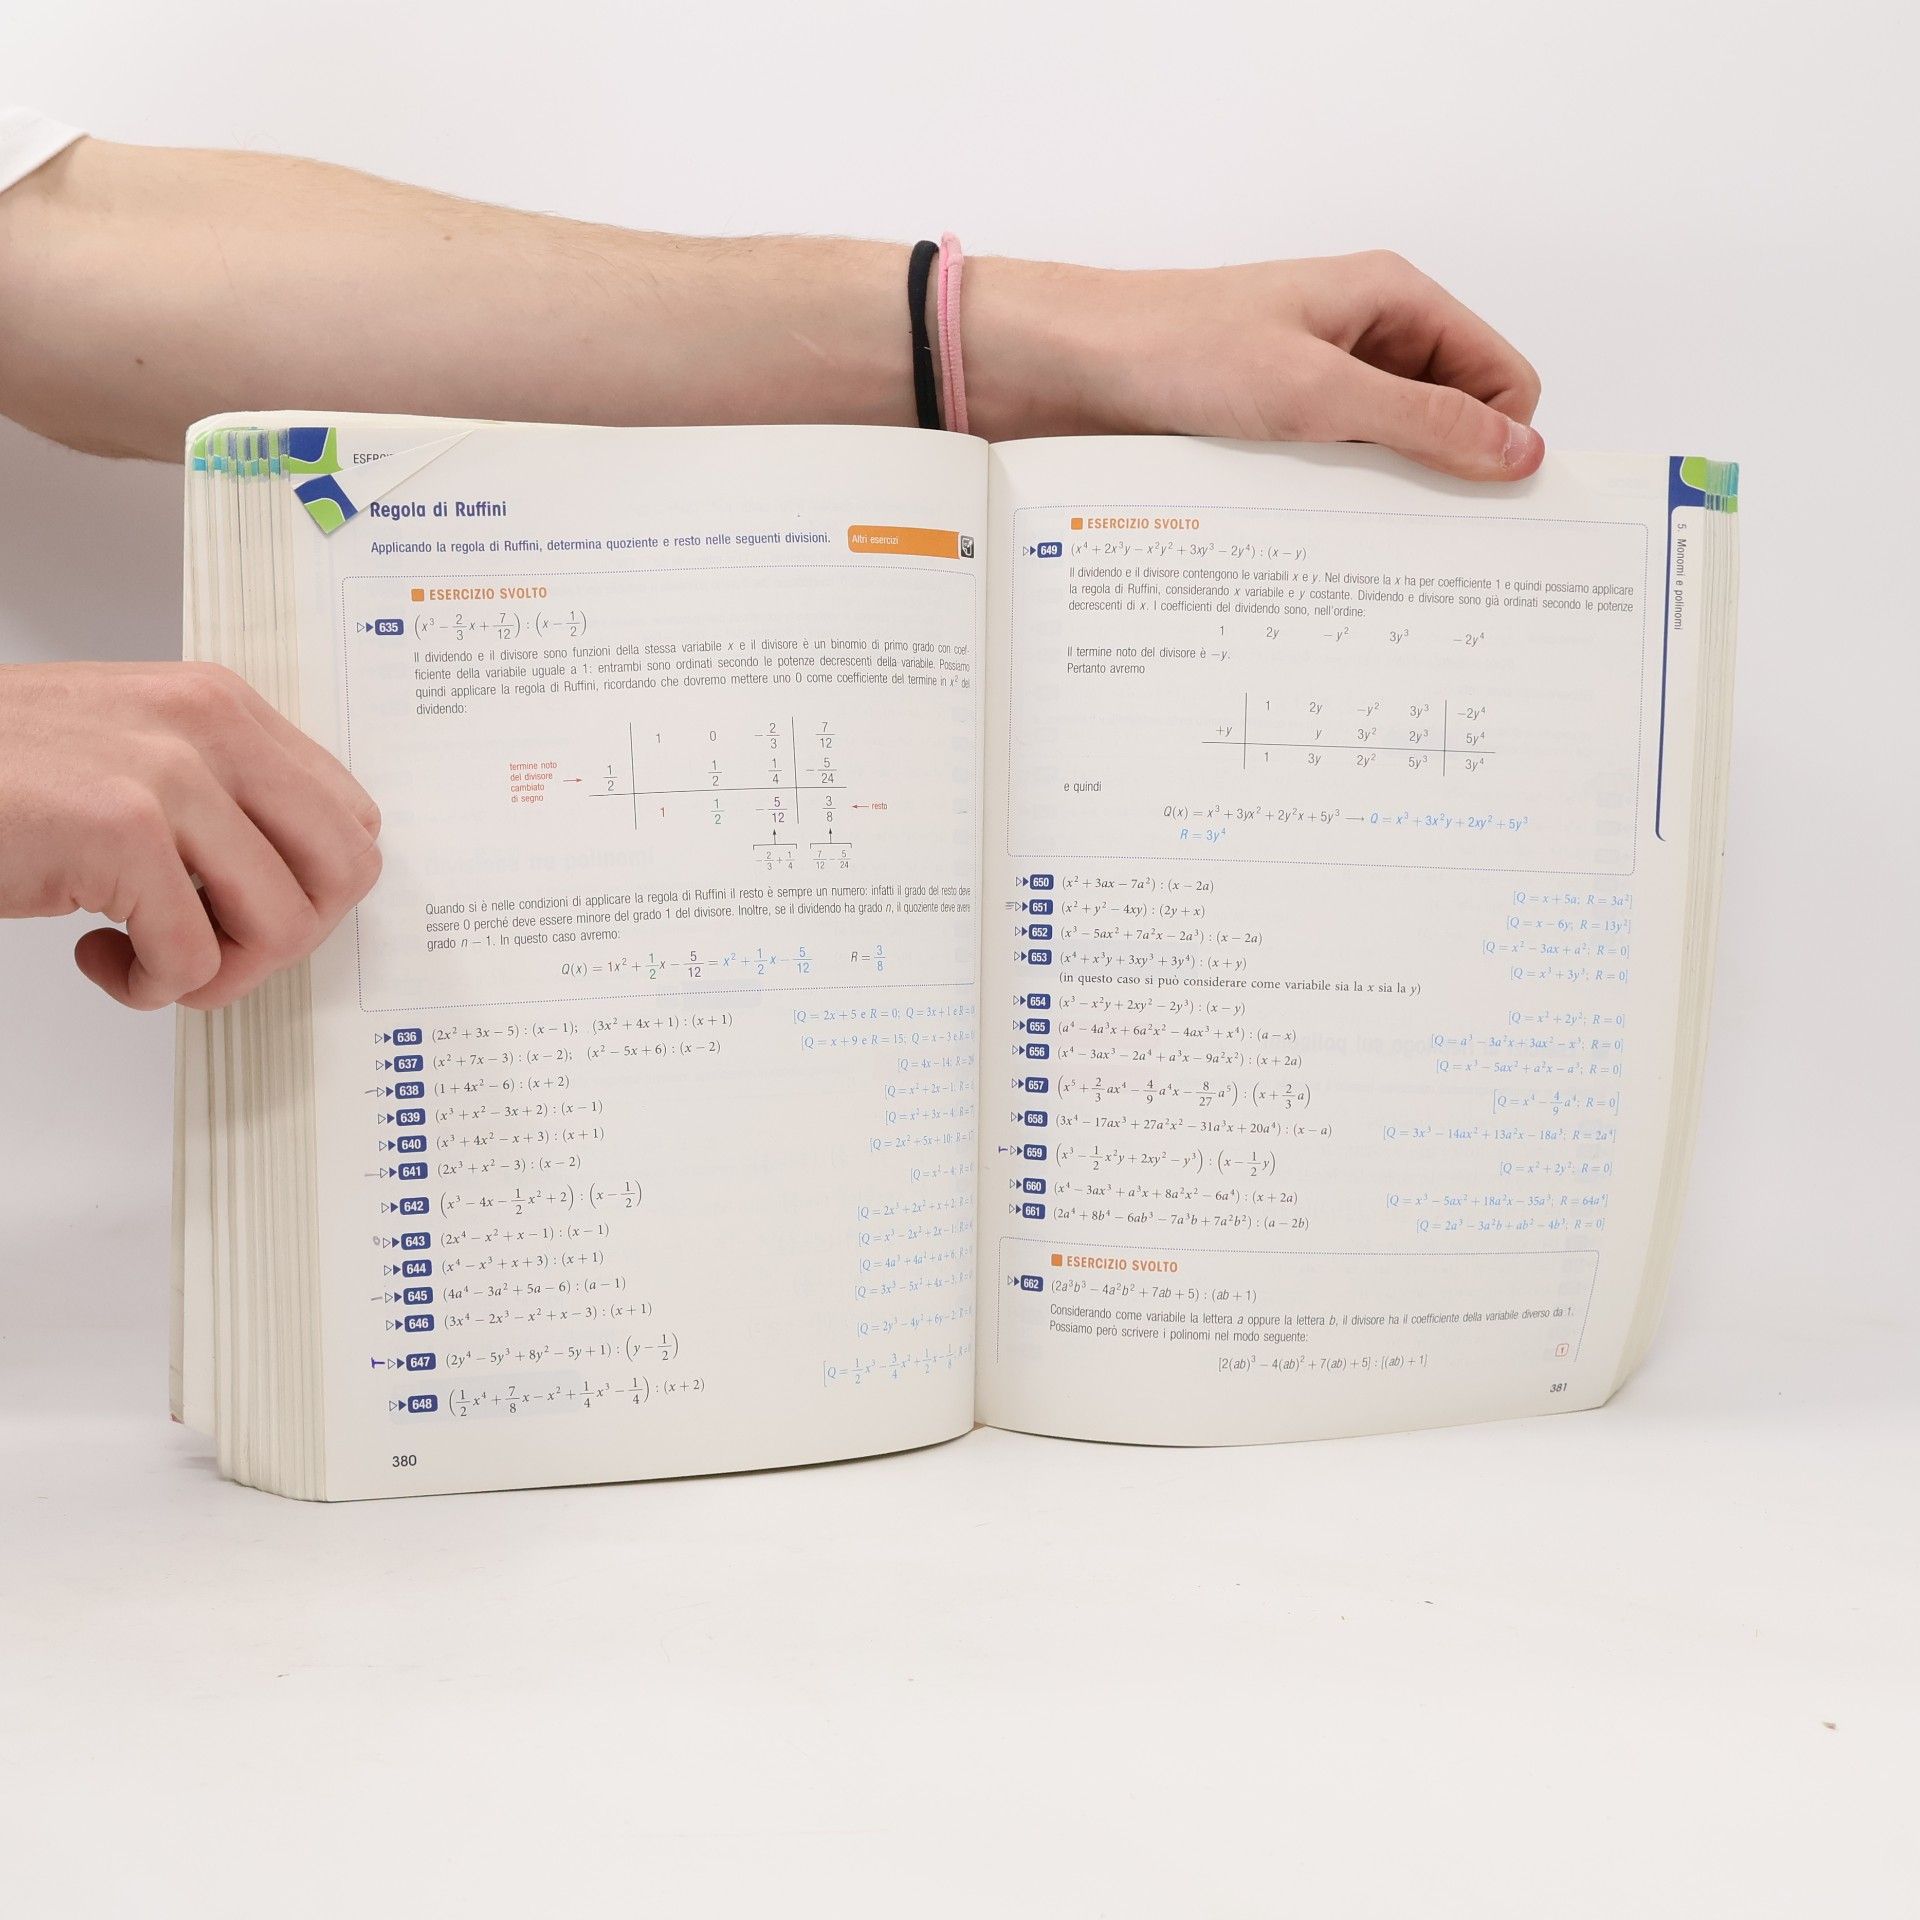 Regola di Ruffini
Applicando la regola di Ruffini, determina quoziente e resto nelle seguenti divisioni.
Altri esercizi
ESERCIZIO SVOLTO
635 (x³ − 2/3 x + 7/12) : (x − 1/2)
Il dividendo e il divisore sono funzioni della stessa variabile x e il divisore è un binomio di primo grado con coef-
ficiente della variabile uguale a 1; entrambi sono ordinati secondo le potenze decrescenti della variabile. Possiamo
quindi applicare la regola di Ruffini, ricordando che dovremo mettere uno 0 come coefficiente del termine in x² del
dividendo:
1 0 −2/3 7/12
termine noto
del divisore
cambiato
di segno
1/2 1/2 1/4 −5/24
1 1/2 −5/12 3/8 resto
−2/3 + 1/4 7/12 − 5/24
Quando si è nelle condizioni di applicare la regola di Ruffini il resto è sempre un numero: infatti il grado del resto deve
essere 0 perché deve essere minore del grado 1 del divisore. Inoltre, se il dividendo ha grado n, il quoziente deve avere
grado n − 1. In questo caso avremo:
Q(x) = 1x² + 1/2 x − 5/12 = x² + 1/2 x − 5/12 R = 3/8
636 (2x² + 3x − 5) : (x − 1); (3x² + 4x + 1) : (x + 1) [Q = 2x + 5 e R = 0; Q = 3x + 1 e R = 0
637 (x² + 7x − 3) : (x − 2); (x² − 5x + 6) : (x − 2) [Q = x + 9 e R = 15; Q = x − 3 e R = 0
638 (1 + 4x² − 6) : (x + 2) [Q = 4x − 14; R = 2
639 (x³ + x² − 3x + 2) : (x − 1) [Q = x² + 2x − 1; R =
640 (x³ + 4x² − x + 3) : (x + 1) [Q = x² + 3x − 4; R = 7
641 (2x³ + x² − 3) : (x − 2) [Q = 2x² + 5x + 10; R = 17
642 (x³ − 4x − 1/2 x² + 2) : (x − 1/2) [Q = x² − 4; R =
643 (2x⁴ − x² + x − 1) : (x − 1) [Q = 2x³ + 2x² + x + 2; R =
644 (x⁴ − x³ + x + 3) : (x + 1) [Q = x³ − 2x² + 2x − 1; R =
645 (4a⁴ − 3a² + 5a − 6) : (a − 1) [Q = 4a³ + 4a² + a + 6; R =
646 (3x⁴ − 2x³ − x² + x − 3) : (x + 1) [Q = 3x³ − 5x² + 4x − 3; R =
647 (2y⁴ − 5y³ + 8y² − 5y + 1) : (y − 1/2) [Q = 2y³ − 4y² + 6y − 2; R =
648 (1/2 x⁴ + 7/8 x − x² + 1/4 x³ − 1/4) : (x + 2) [Q = 1/2 x³ − 3/4 x² + 1/2 x − 1/8; R =
380
5. Monomi e polinomi
ESERCIZIO SVOLTO
649 (x⁴ + 2x³y − x²y² + 3xy³ − 2y⁴) : (x − y)
Il dividendo e il divisore contengono le variabili x e y. Nel divisore la x ha per coefficiente 1 e quindi possiamo applicare
la regola di Ruffini, considerando x variabile e y costante. Dividendo e divisore sono già ordinati secondo le potenze
decrescenti di x. I coefficienti del dividendo sono, nell'ordine:
1 2y − y² 3y³ − 2y⁴
Il termine noto del divisore è −y.
Pertanto avremo
1 2y −y² 3y³ −2y⁴
+y y 3y² 2y³ 5y⁴
1 3y 2y² 5y³ 3y⁴
e quindi
Q(x) = x³ + 3yx² + 2y²x + 5y³ ⟶ Q = x³ + 3x²y + 2xy² + 5y³
R = 3y⁴
650 (x² + 3ax − 7a²) : (x − 2a) [Q = x + 5a; R = 3a²]
651 (x² + y² − 4xy) : (2y + x) [Q = x − 6y; R = 13y²]
652 (x³ − 5ax² + 7a²x − 2a³) : (x − 2a) [Q = x² − 3ax + a²; R = 0]
653 (x⁴ + x³y + 3xy³ + 3y⁴) : (x + y) [Q = x³ + 3y³; R = 0]
(in questo caso si può considerare come variabile sia la x sia la y)
654 (x³ − x²y + 2xy² − 2y³) : (x − y) [Q = x² + 2y²; R = 0]
655 (a⁴ − 4a³x + 6a²x² − 4ax³ + x⁴) : (a − x) [Q = a³ − 3a²x + 3ax² − x³; R = 0]
656 (x⁴ − 3ax³ − 2a⁴ + a³x − 9a²x²) : (x + 2a) [Q = x³ − 5ax² + a²x − a³; R = 0]
657 (x⁵ + 2/3 ax⁴ − 4/9 a⁴x − 8/27 a⁵) : (x + 2/3 a) [Q = x⁴ − 4/9 a⁴; R = 0]
658 (3x⁴ − 17ax³ + 27a²x² − 31a³x + 20a⁴) : (x − a) [Q = 3x³ − 14ax² + 13a²x − 18a³; R = 2a⁴]
659 (x³ − 1/2 x²y + 2xy² − y³) : (x − 1/2 y) [Q = x² + 2y²; R = 0]
660 (x⁴ − 3ax³ + a³x + 8a²x² − 6a⁴) : (x + 2a) [Q = x³ − 5ax² + 18a²x − 35a³; R = 64a⁴]
661 (2a⁴ + 8b⁴ − 6ab³ − 7a³b + 7a²b²) : (a − 2b) [Q = 2a³ − 3a²b + ab² − 4b³; R = 0]
ESERCIZIO SVOLTO
662 (2a³b³ − 4a²b² + 7ab + 5) : (ab + 1)
Considerando come variabile la lettera a oppure la lettera b, il divisore ha il coefficiente della variabile diverso da 1.
Possiamo però scrivere i polinomi nel modo seguente:
[2(ab)³ − 4(ab)² + 7(ab) + 5] : [(ab) + 1]
381